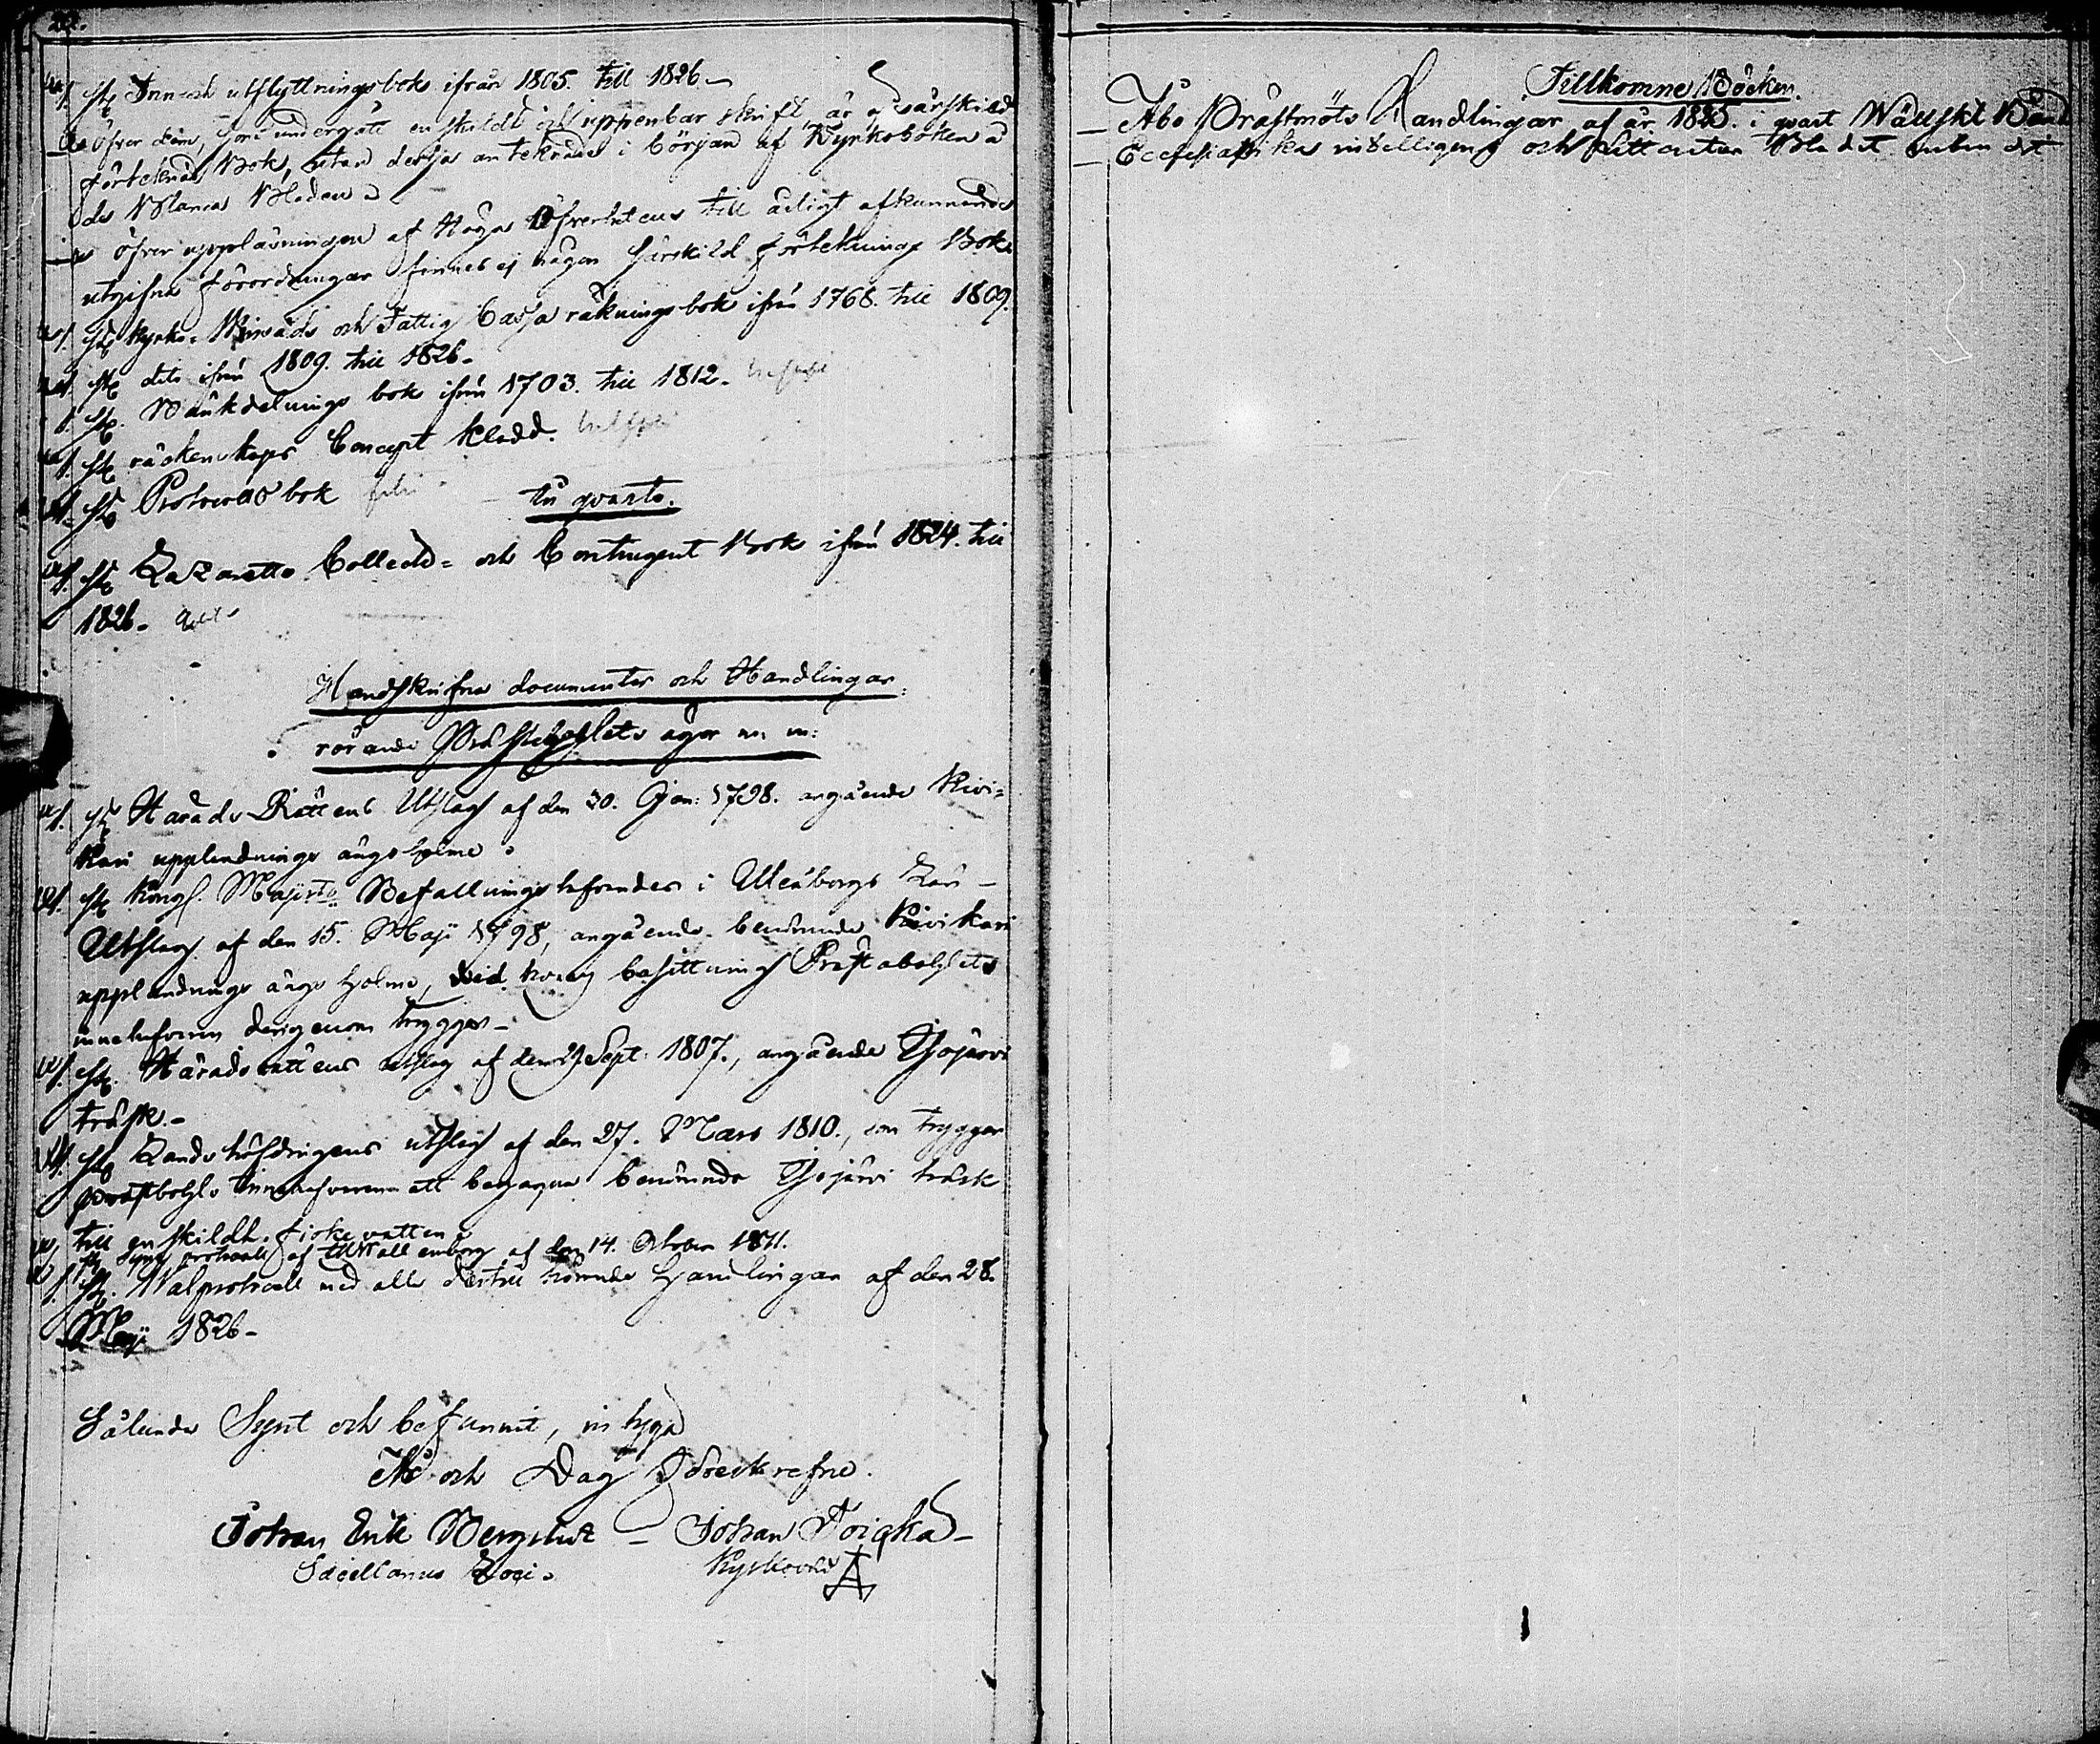 22.
1. st. Inn och utflyttningsbok ifrån 1805. till 1826 –
öfver dem, som undergått enskildt och uppenbar skrift, är ej särskild
förteknad Bok, utan dessa anteknade i början af Kyrkoboken å
de Blanca Bladen.
– öfver uppläsningen af Höga Öfverhetens till ärligt afkunnande
utgifna förordningar finnes ej någon särskild förteknings Bok.
1. st. Kyrko- och Fattig Cassa räkningsbok ifrån 1768. till 1809.
1. st. dito ifrån 1809. till 1826 –
1. st. Bänkdelnings bok ifrån 1703. till 1812.
1. st. räckenskaps Concept Kladd.
1. st. Protocolls bok
In qvarto.
1. st. Lazaretts Collect- och Contingent Bok ifrån 1824. till
1826 –
Handskrifna documenter och Handlingar
rörande Prästebohlets ägor m. m.
1. st. Härads Rättens Utslag af den 30. Jan: 1798. angående Kivi-
kari upplandnings ängsholme.
1. st. Kongl. Majts Befallningshafvandes i Uleåborgs Län
Utslag af den 15. Maji 1798, angående benämnde Kivikari
upplandnings ängs holme, vid hvars besittning Prästabohlets
innehafvaren derigenom trygges –
1. st. Häradsrättens utslag af den 29 Sept. 1807., angående Isojärvi
träsk. –
1. st. Landshöfdingens utslag af den 27. Mars 1810., som trygger
prästbohls innehafvaren att begagna benämnde Isojärvi träsk
till enskildt fiskevatten.
1. st. Syne protocoll af Wallenborg af den 14. October 1811.
1. st. Valprotocoll med alla dertill hörande Handlingar af den 28.
Maji 1826 –
Sålunda Synt och befunnit, intyga
År och Dag förskrefne.
Johan Erik Bergelund – Johan Toiqka –
Sacellanus Loci. Kyrkovärd
Tillkomne Böcker.
– Åbo Prästmöts Handlingar af år 1825. i qvart Wällskt Band
– Ecclesiastika intelligens och Litteratur Bladet